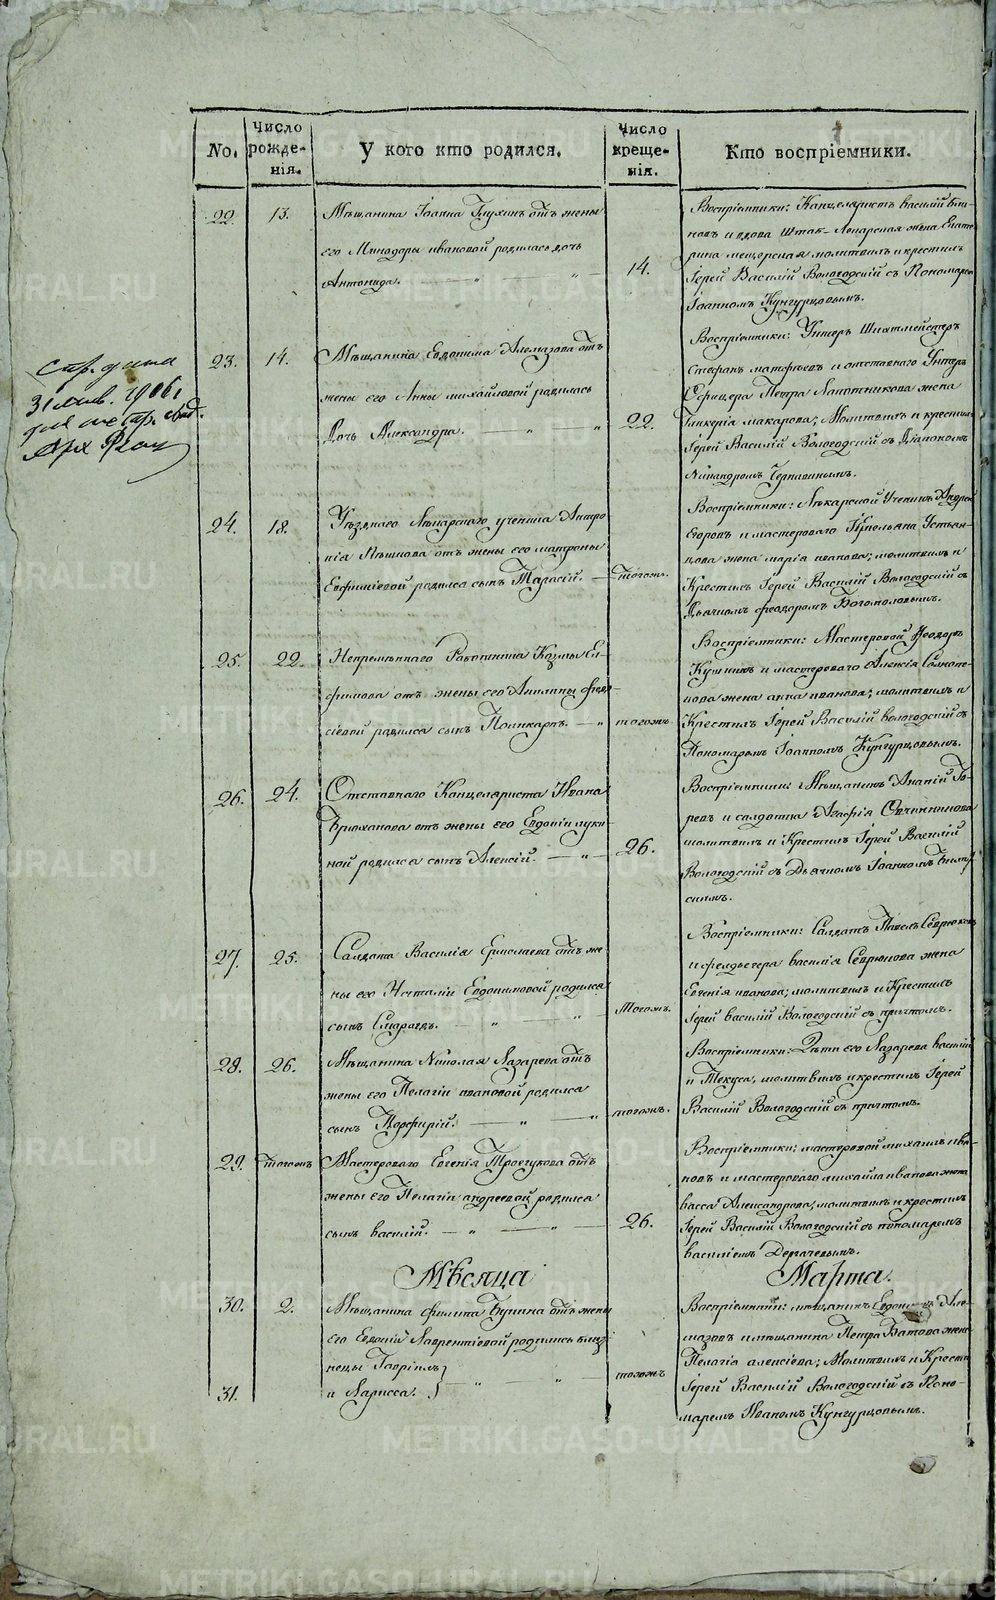 No.
Число рожде- нія.
У кого кто родился.
Число креще- нія.
Кто воспріемники.
22.
13.
Мѣщанина Іоанна Глухихъ отъ жены
его Минодоры ивановой родилась дочь
Антонида.
14.
Воспріемники: Канцеляристъ василій
новъ и вдова Штаб-Лекарская жена Екате
рина мещерская молитвилъ и крестилъ
Іерей Василій Вологодскій съ Пономаремъ
Іоанномъ Кунгурцовымъ.
стр. дана
31 янв. 1906 г
23.
14.
Мѣщанина Евдокима Алемазова отъ
жены его Анны михайловой родилась
Дочь Александра.
22.
Воспріемники: Унтеръ Шихтмейстеръ
Стефанъ матфеевъ и отставнаго Унтеръ
Офицера Петра Лапотникова жена
Гликерія макарова; Молитвилъ и крестилъ
Іерей Василій Вологодскій съ Діакономъ
Никандромъ Чернавинымъ.
24.
18.
Уѣзднаго Лѣкарскаго ученика Антро
пія Пѣшкова отъ жены его матроны
Евфиміевой родился сынъ Тарасій.
тогожъ.
Воспріемники: Лѣкарской Ученикъ Андрей
Егоровъ и мастероваго
цова жена марія иванова; молитвилъ и
Крестилъ Іерей Василій Вологодскій съ
Дьячкомъ феодоромъ Богомоловымъ.
25.
22.
Непремѣннаго Работника Козмы Ев-
фимова отъ жены его Акилины
сіевой родился сынъ Поликарпъ.
тогожъ.
Воспріемники: Мастеровой Феодоръ
Кушинъ и мастероваго Алексія
нова жена анна иванова; молитвилъ и
Крестилъ Іерей Василій вологодскій съ
Пономаремъ Іоанномъ Кунгурцовымъ.
26.
24.
Отставнаго Канцеляриста Ивана
Брюханова отъ жены его Евдокіи луки
ной родился сынъ Алексій.
26.
Воспріемники: Мѣщанинъ Ананій Го
ревъ и салдатка Агафія Овчинникова
молитвилъ и Крестилъ Іерей Василій
Вологодскій съ Дьячкомъ Іоанномъ
скимъ.
27.
25.
Салдата Василія Ермолаева отъ же-
ны его Наталіи Евдокимовой родился
сынъ Смарагдъ.
Тогожъ.
Воспріемники: Салдатъ Павелъ Севрюковъ
и фельдьегера василія Севрюкова жена
Евгенія иванова; молитвилъ и Крестилъ
Іерей василій Вологодскій съ причтомъ.
28.
26.
Мѣщанина Николая Лазарева отъ
жены его Пелагіи ивановой родился
сынъ Порфирій.
тогожъ.
Воспріемники: Дѣти его Лазарева василій
и Текуса, молитвилъ и крестилъ Іерей
Василій Вологодскій съ причтомъ.
29.
тогожъ
Мастероваго Евгенія Треегукова отъ
жены его Пелагіи андреевой родился
сынъ василій.
26.
Воспріемники: мастеровой михаилъ ива
новъ и мастероваго михайла иванова жена
васса Александрова; молитвилъ и крестилъ
Іерей Василій Вологодскій съ пономаремъ
василіемъ Дергачевымъ.
Мѣсяца
Марта.
30.
2.
Мѣщанина филипа Бунина отъ жены
Его Евдокіи Лаврентіевой родились близ
нецы Гавріилъ
31.
и Ларисса.
тогожъ
Воспріемники: мѣщанинъ Евдокимъ Але
мазовъ и мѣщанина Петра Батова жена
Пелагія алексіева; Молитвилъ и Крестилъ
Іерей Василій Вологодскій съ Поно-
маремъ Иваномъ Кунгурцовымъ.